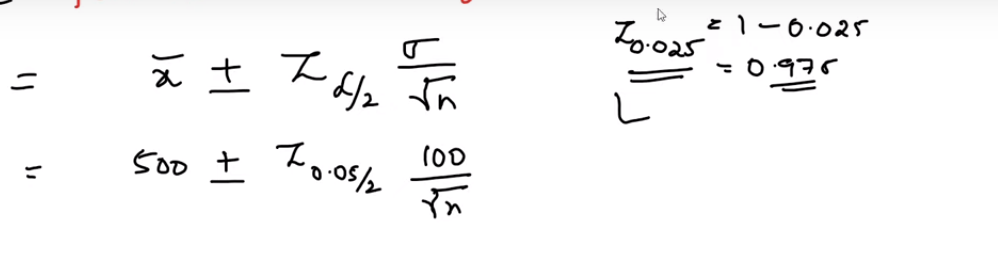 = x̄ ± Z α/2 σ/√n
= 500 ± Z 0.05/2 100/√n
Z0.025 = 1 - 0.025
= 0.975